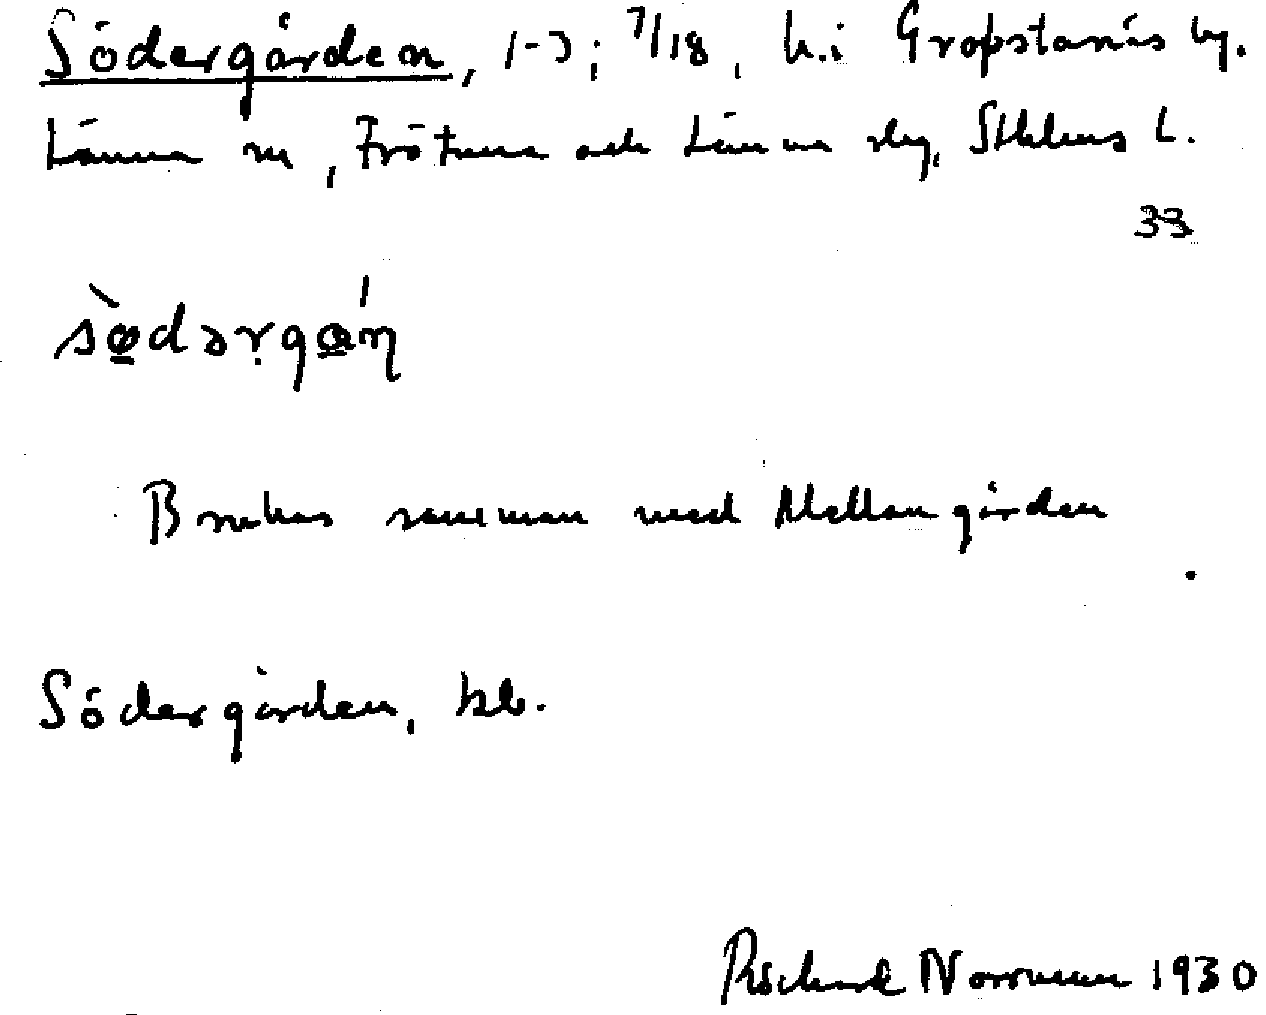 Södergården, 1-3; 7/18, h. i Gropstanäs by.
Länna sn, Frötuna och Länna slg, Sthlms l.
33
sø̀dərgɑ́ṇ
Brukas samman med Mellangården
Södergården, kb.
Richard Norrman 1930